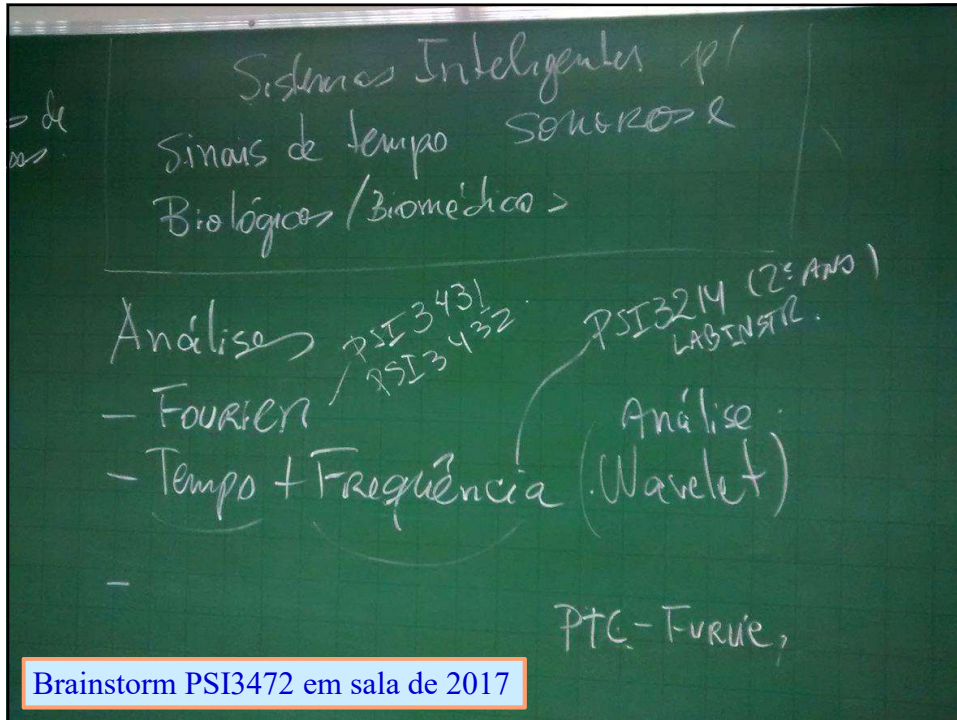 Sistemas Inteligentes p/
Sinais de tempo SONOROS e
Biológicos/Biomédicos
Análises
PSI3431
PSI3432
PSI3214 (2º ANO)
LABINSTR.
- FOURIER
- Tempo + Freqüência
Análise
(Wavelet)
-
PTC - FURUIE,
Brainstorm PSI3472 em sala de 2017